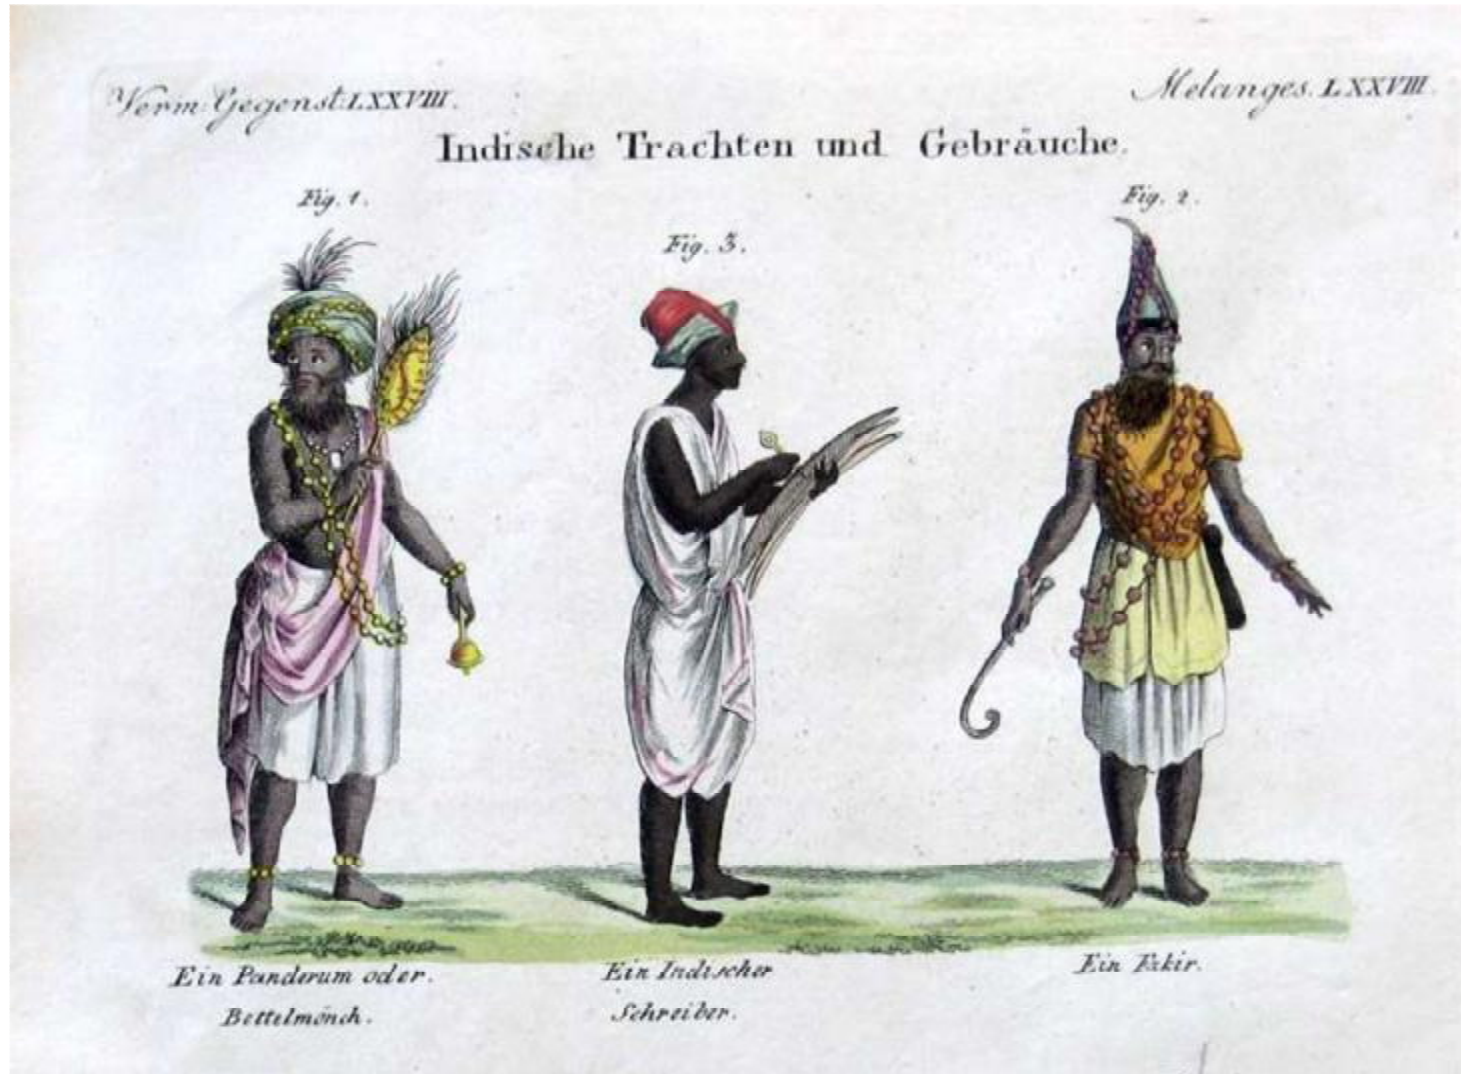 Verm. Gegenst. LXXVIII.
Melanges. LXXVIII.
Indische Trachten und Gebräuche.
Fig. 1.
Fig. 3.
Fig. 2.
Ein Panderum oder
Bettelmönch.
Ein Indischer
Schreiber.
Ein Fakir.